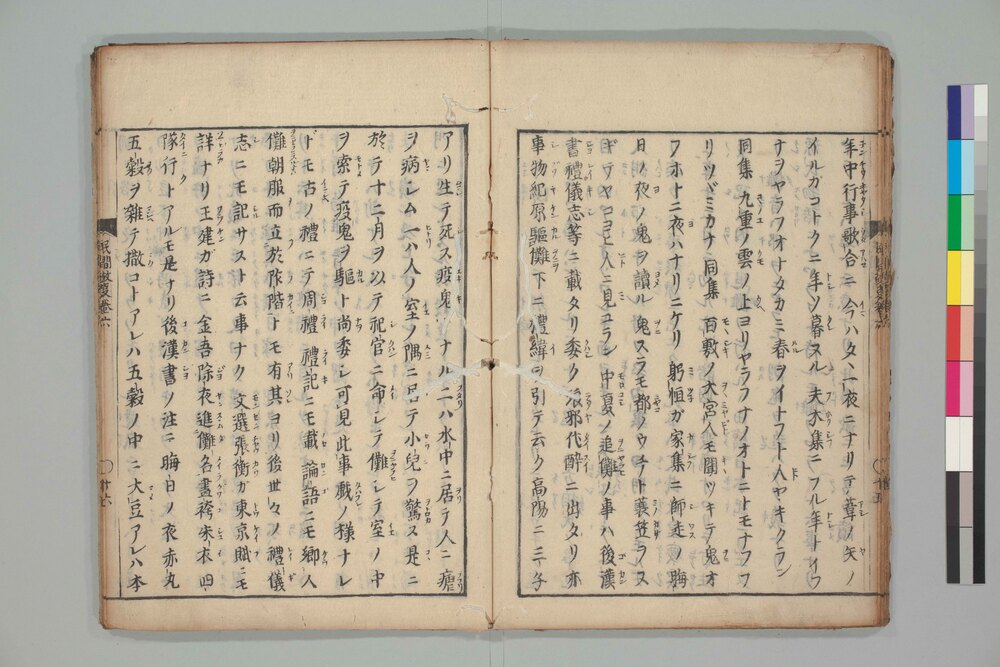 年中行事歌合ニ今ハタヽ一夜ニナリテ葦ノ矢ノ
イルカコトクニ年ソ暮ヌル 夫木集ニフル年トイフ
ナヲヤラフオナタカミ春ヲイトフト人ヤキクラン
同集 九重ノ雲ノ上ヨリヤラフナノオトニトモナフフ
リツヾミカナ 同集 百敷ノ大宮人モ聞ツキテ鬼オ
フホト二夜ハナリニケリ 躬恒ガ家集ニ師走ノ晦
日ノ夜ノ鬼ヲ讀ル 鬼スラモ都ノウチト蓑笠ヲヌ
ギテヤコヨヒ人ニ見ユラン 中夏ノ追儺ノ事ハ後漢
書禮儀志等ニ載タリ委ク瑯邪代酔ニ出タリ亦
事物紀原驅儺下ニ禮緯ヲ引テ云ク高陽ニ三子
アリ生テ死ス疫鬼トナル二ハ水中ニ居テ人ニ瘧
ヲ病シム一ハ人ノ室ノ隅ニ居テ小兒ヲ驚ス是ニ
於テ十二月ヲ以テ祀官ニ命シテ儺シテ室ノ中
ヲ索テ疫鬼ヲ驅ト尚委シ可見此事戲ノ様ナレ
ドモ古ノ禮ニテ周禮 禮記ニモ載 論語ニモ郷人
儺朝服而立於阼階トモ有其ヨリ後世々ノ禮儀
志ニモ記サスト云事ナク 文選張衡ガ東京賦ニモ
詳ナリ王建ガ詩ニ金吾除夜進儺名畫袴朱衣四
隊行トアルモ是ナリ後漢書ノ注ニ晦日ノ夜赤丸
五穀ヲ雜テ撒コトアレハ五穀ノ中ニ大豆アレハ本
民間歳夏巻六
廿六